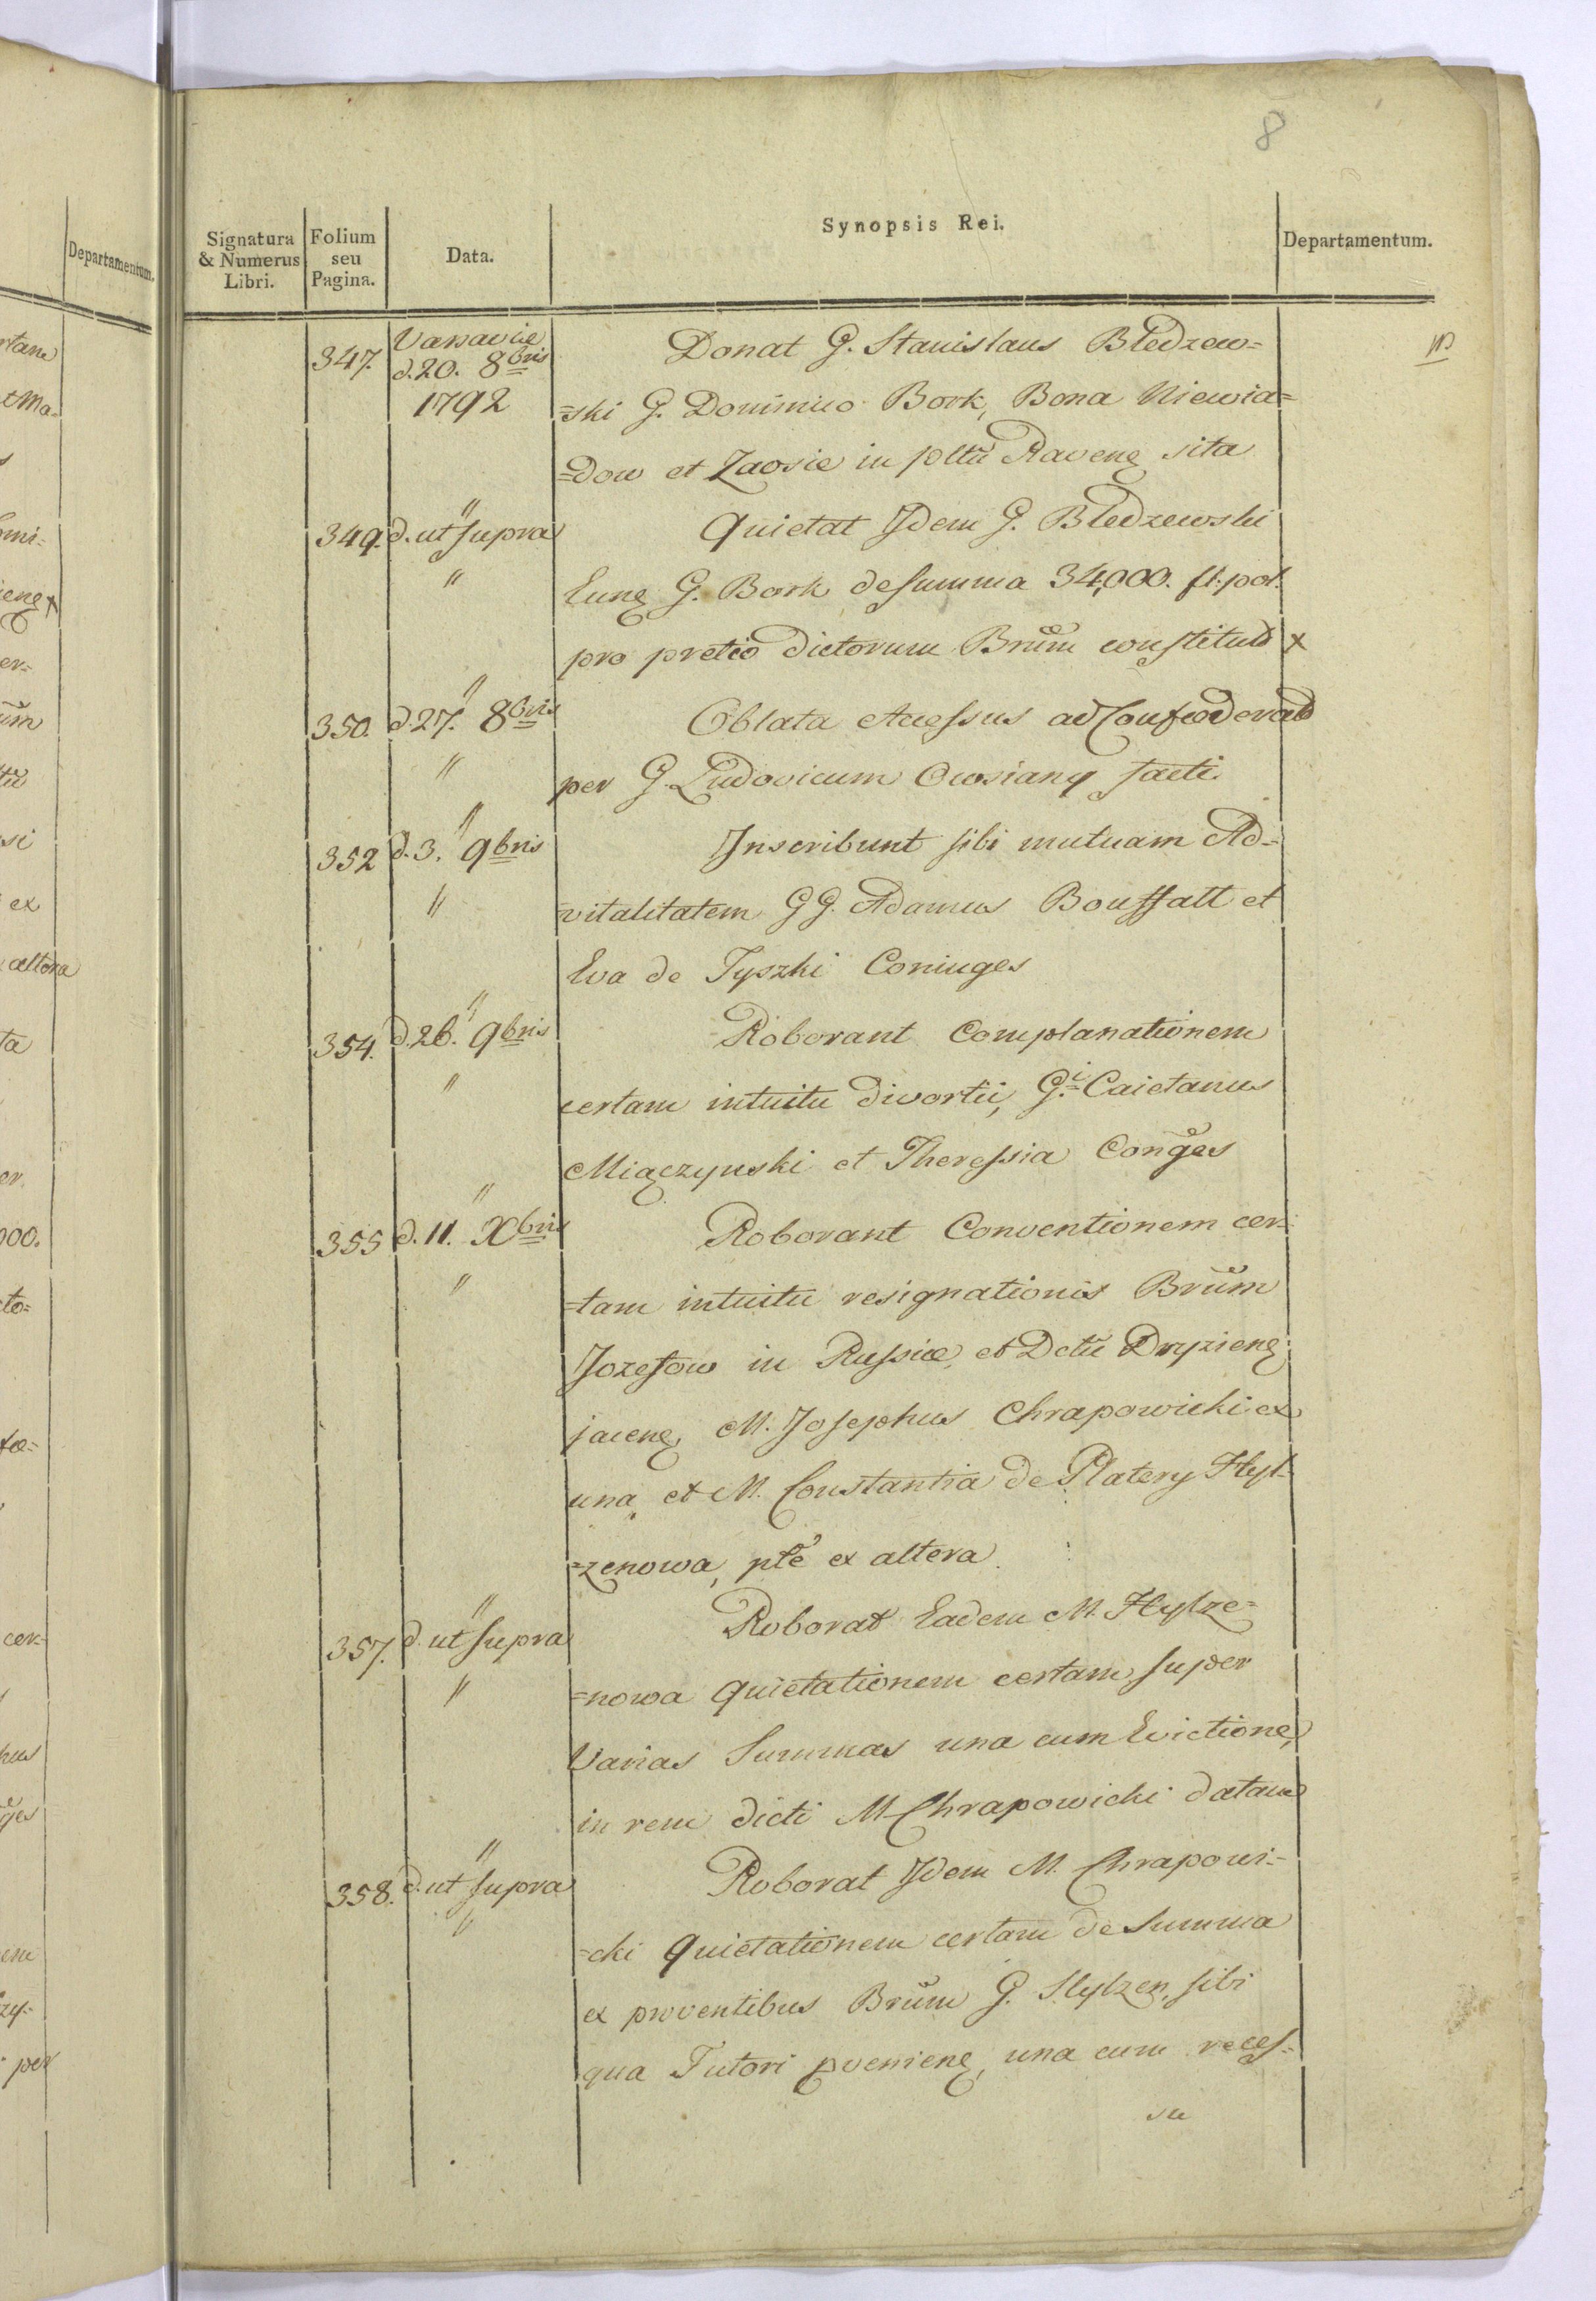 8
Signatura & Numerus Libri.
Folium seu Pagina.
Data.
Synopsis Rei.
Departamentum.
347. Varsaviæ d. 20. 8bris 1792
Donat G. Stanislaus Bledzew=
=ski G. Dominico Bork, Bona Niewia=
=dow et Zaosie in plttũ Ravenę sita
349. d. ut supra
Quietat Idem G. Bledzewski
Eunę G. Bork de summa 34,000. fl. pol.
pro pretio dictorum Brũm constituto x
350. d. 27. 8bris
Oblata Accessus ad Confœderato
per G. Ludovicum Owsiany facti
352 d. 3. 9bris
Inscribunt sibi mutuam Ad=
=vitalitatem GG. Adamus Bouffałł et
Eva de Tyszki Coniuges
354. d. 26. 9bris
Roborant Complanationem
certam intuitu divortii, G.i Caietanus
Miączynski et Theressia Conğes
355 d. 11. Xbris
Roborant Conventionem cer=
=tam intuitu resignationis Brũm
Jozefow in Russia, et Dctũ Dryzienę
jacenę, M. Josephus Chrapowicki ex
una et M. Constantia de Platery Hyl=
=zenowa, pte ex altera
357. d. ut supra
Roborat Eadem M. Hylze=
=nowa quietationem certam super
Varias Summas una cum Evictione,
in rem dicti M. Chrapowicki datam
358. d. ut supra
Roborat Idem M. Chrapowi=
=cki quietationem certam de summa
ex proventibus Brũm G. Hylzen, sibi
qua Tutori pvenienę, una cum reces=
su